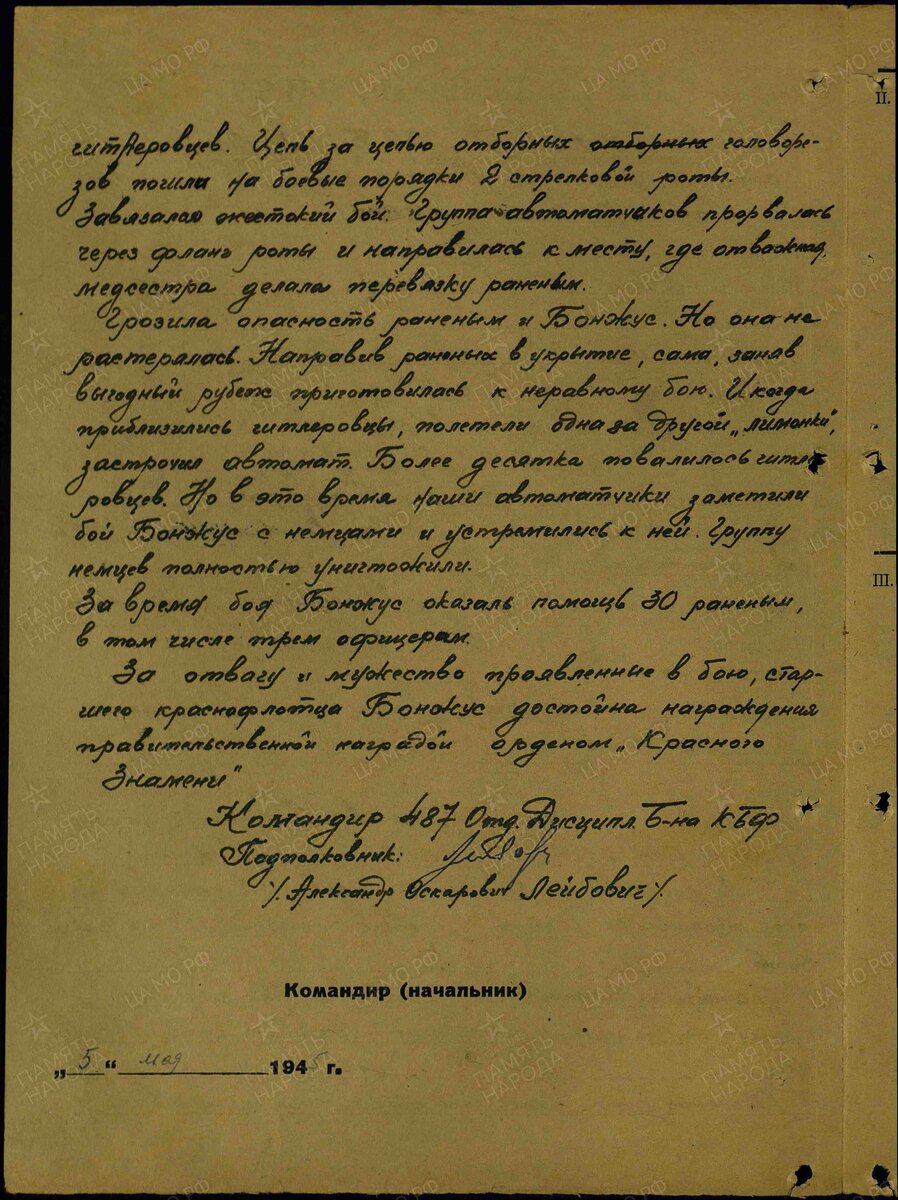 гитлеровцев. Цепь за цепью отборных отборных головоре-
зов пошли на боевые порядки 2 стрелковой роты.
Завязался жестокий бой. Группа автоматчиков прорвалась
через фланг роты и направилась к месту, где отважная
медсестра делала перевязку раненым.
Грозила опасность раненым и Бонжус. Но она не
растералась. Направив раненых в укрытие, сама, заняв
выгодный рубеж приготовилась к неравному бою. И когда
приблизились гитлеровцы, полетели одна за другой „лимонки",
застрочил автомат. Более десятка повалилось гитле-
ровцев. Но в это время наши автоматчики заметили
бой Бонжус с немцами и устремились к ней. Группу
немцев полностью уничтожили.
За время боя Бонжус оказаль помощь 30 раненым,
в том числе трем офицерам.
За отвагу и мужество проявленные в бою, стар-
шего краснофлотца Бонжус достойна награждения
правительственной наградой орденом „Красного
Знамени"
Командир 487 Отд. Дисципл. Б-на КБФ
Подполковник:
/. Александр Оскарович Лейбович /.
Командир (начальник)
„5" мая 1945 г.
II.
III.
ЦА МО РФ
ПАМЯТЬ НАРОДА